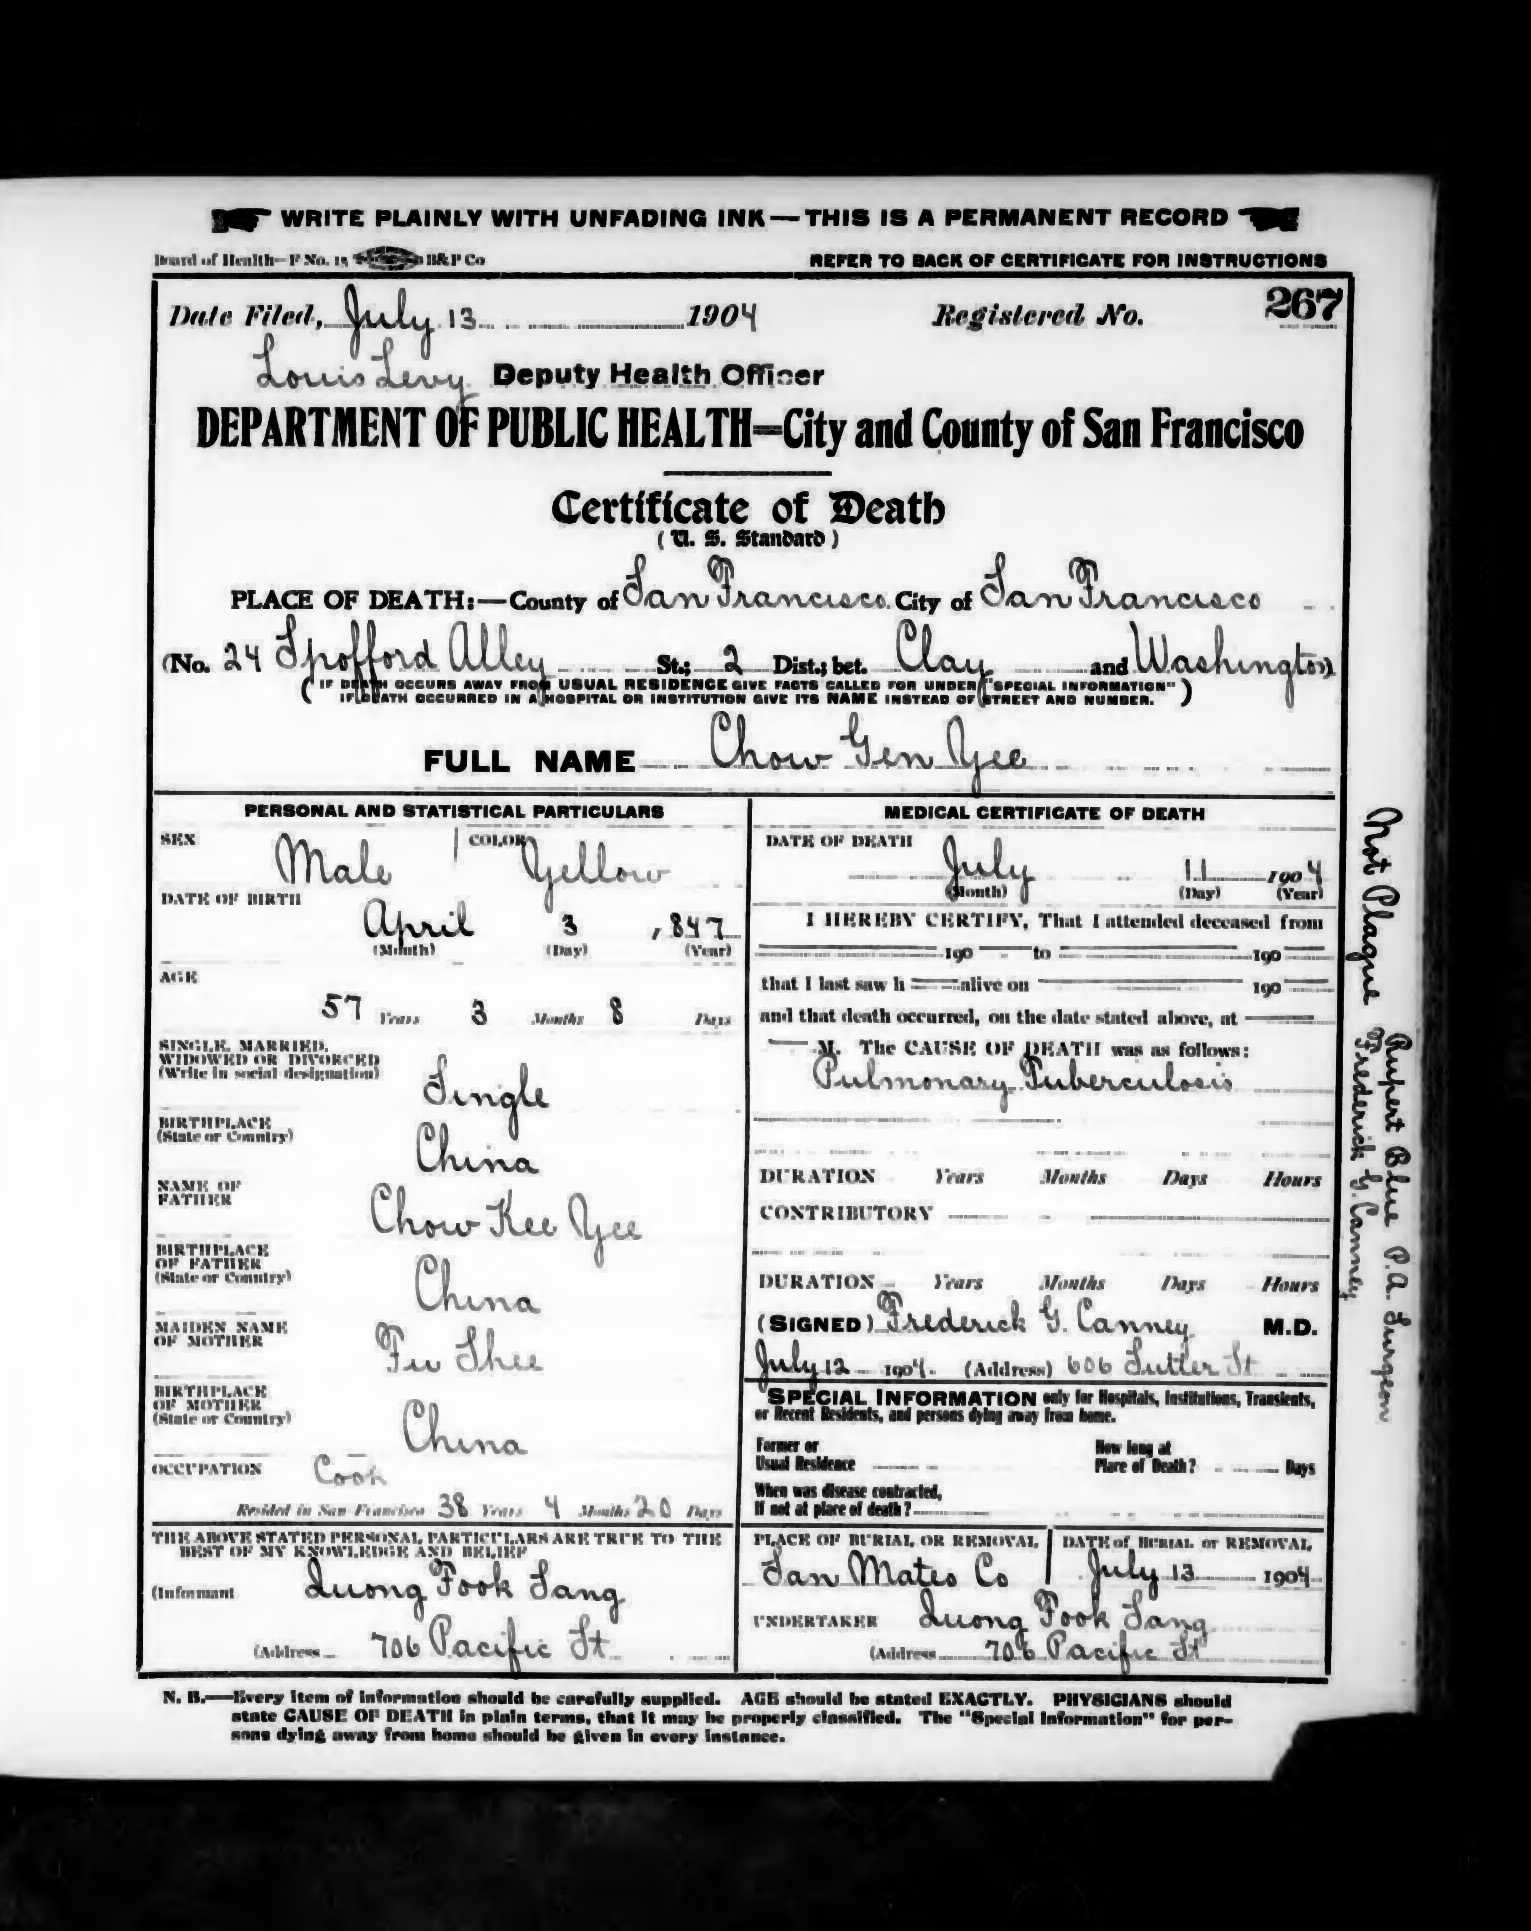 WRITE PLAINLY WITH UNFADING INK—THIS IS A PERMANENT RECORD
Board of Health—F No. 15 B&P Co REFER TO BACK OF CERTIFICATE FOR INSTRUCTIONS
Date Filed, July 13 1904 Registered No. 267
Louis Levy Deputy Health Officer
DEPARTMENT OF PUBLIC HEALTH—City and County of San Francisco
Certificate of Death
(U. S. Standard)
PLACE OF DEATH:—County of San Francisco City of San Francisco
(No. 24 Spofford Alley St.; 2 Dist.; bet. Clay and Washington)
(IF DEATH OCCURS AWAY FROM USUAL RESIDENCE GIVE FACTS CALLED FOR UNDER "SPECIAL INFORMATION"
IF DEATH OCCURRED IN A HOSPITAL OR INSTITUTION GIVE ITS NAME INSTEAD OF STREET AND NUMBER.)
FULL NAME Chow Gen Yee
PERSONAL AND STATISTICAL PARTICULARS
SEX Male COLOR Yellow
DATE OF BIRTH
April 3 , 847
(Month) (Day) (Year)
AGE
57 Years 3 Months 8 Days
SINGLE, MARRIED,
WIDOWED OR DIVORCED
(Write in social designation)
Single
BIRTHPLACE
(State or Country)
China
NAME OF
FATHER
Chow Kee Yee
BIRTHPLACE
OF FATHER
(State or Country)
China
MAIDEN NAME
OF MOTHER
Fu Shee
BIRTHPLACE
OF MOTHER
(State or Country)
China
OCCUPATION Cook
Resided in San Francisco 38 Years 4 Months 20 Days
THE ABOVE STATED PERSONAL PARTICULARS ARE TRUE TO THE
BEST OF MY KNOWLEDGE AND BELIEF
(Informant Quong Fook Sang
(Address 706 Pacific St
MEDICAL CERTIFICATE OF DEATH
DATE OF DEATH
July 11 1904
(Month) (Day) (Year)
I HEREBY CERTIFY, That I attended deceased from
190 to 190
that I last saw h alive on 190
and that death occurred, on the date stated above, at
M. The CAUSE OF DEATH was as follows:
Pulmonary Tuberculosis
DURATION Years Months Days Hours
CONTRIBUTORY
DURATION Years Months Days Hours
(SIGNED) Frederick G. Canney M.D.
July 12 1904. (Address) 606 Sutter St
SPECIAL INFORMATION only for Hospitals, Institutions, Transients,
or Recent Residents, and persons dying away from home.
Former or
Usual Residence
How long at
Place of Death? Days
When was disease contracted,
If not at place of death?
PLACE OF BURIAL OR REMOVAL DATE of BURIAL or REMOVAL
San Mateo Co July 13 1904
UNDERTAKER Quong Fook Sang
(Address 706 Pacific St
N. B.—Every item of information should be carefully supplied. AGE should be stated EXACTLY. PHYSICIANS should
state CAUSE OF DEATH in plain terms, that it may be properly classified. The "Special Information" for per-
sons dying away from home should be given in every instance.
Not Plague
Rupert Blue P.A. Surgeon
Frederick G. Canney